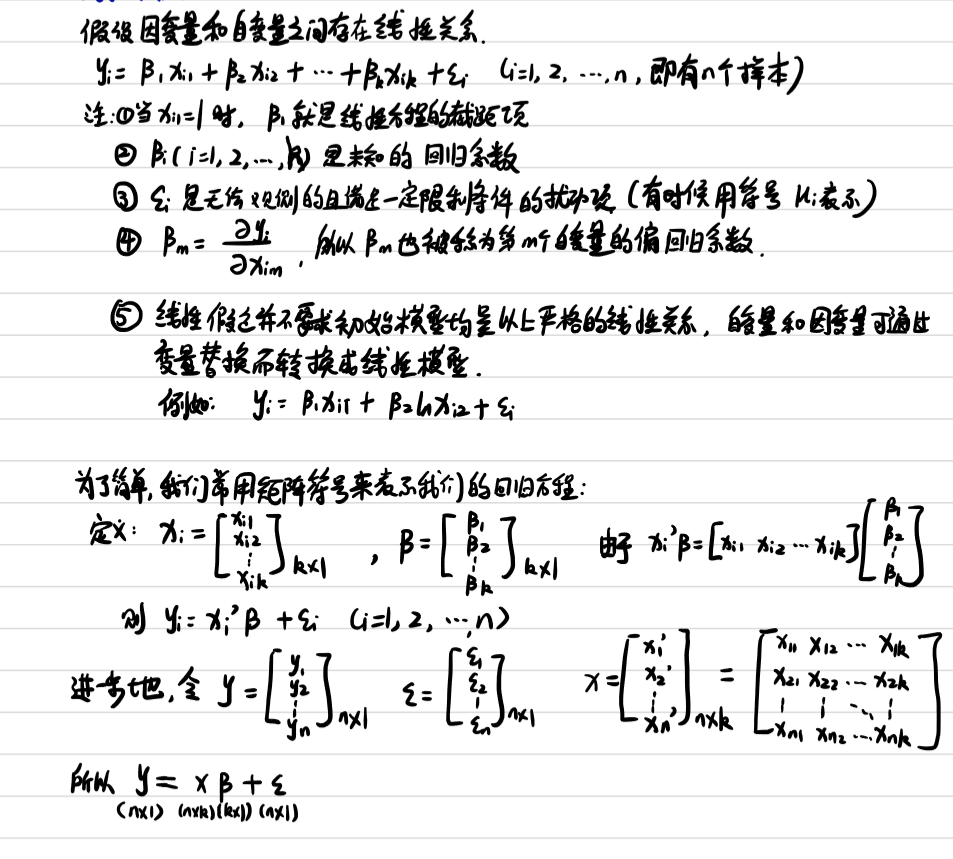 假设因变量和自变量之间存在线性关系.
yᵢ = β₁xᵢ₁ + β₂xᵢ₂ + ⋯ + βₖxᵢₖ + εᵢ (i=1, 2, ⋯, n, 即有n个样本)
注:①当xᵢ₁=1时, β₁就是线性方程的截距项
② βᵢ(i=1, 2, ⋯, k) 是未知的 回归系数
③ εᵢ 是无法观测的且满足一定限制条件的扰动项 (有时候用符号 μᵢ表示)
④ βₘ = ∂yᵢ/∂xᵢₘ , 所以 βₘ也被称为第m个自变量的偏回归系数.
⑤ 线性假定并不要求初始模型均呈以上严格的线性关系, 自变量和因变量可通过
变量替换而转换成线性模型.
例如: yᵢ = β₁xᵢ₁ + β₂lnxᵢ₂ + εᵢ
为了简单, 我们常用矩阵符号来表示我们的回归方程:
定义: xᵢ = [xᵢ₁ xᵢ₂ ⋮ xᵢₖ]ₖₓ₁ , β = [β₁ β₂ ⋮ βₖ]ₖₓ₁ 由于 xᵢ'β = [xᵢ₁ xᵢ₂ ⋯ xᵢₖ][β₁ β₂ ⋮ βₖ]
则 yᵢ = xᵢ'β + εᵢ (i=1, 2, ⋯, n)
进一步地, 令 y = [y₁ y₂ ⋮ yₙ]ₙₓ₁ ε = [ε₁ ε₂ ⋮ εₙ]ₙₓ₁ x = [x₁' x₂' ⋮ xₙ']ₙₓₖ = [x₁₁ x₁₂ ⋯ x₁ₖ x₂₁ x₂₂ ⋯ x₂ₖ ⋮ ⋮ ⋱ ⋮ xₙ₁ xₙ₂ ⋯ xₙₖ]
所以 y = x β + ε
(n×1) (n×k)(k×1) (n×1)